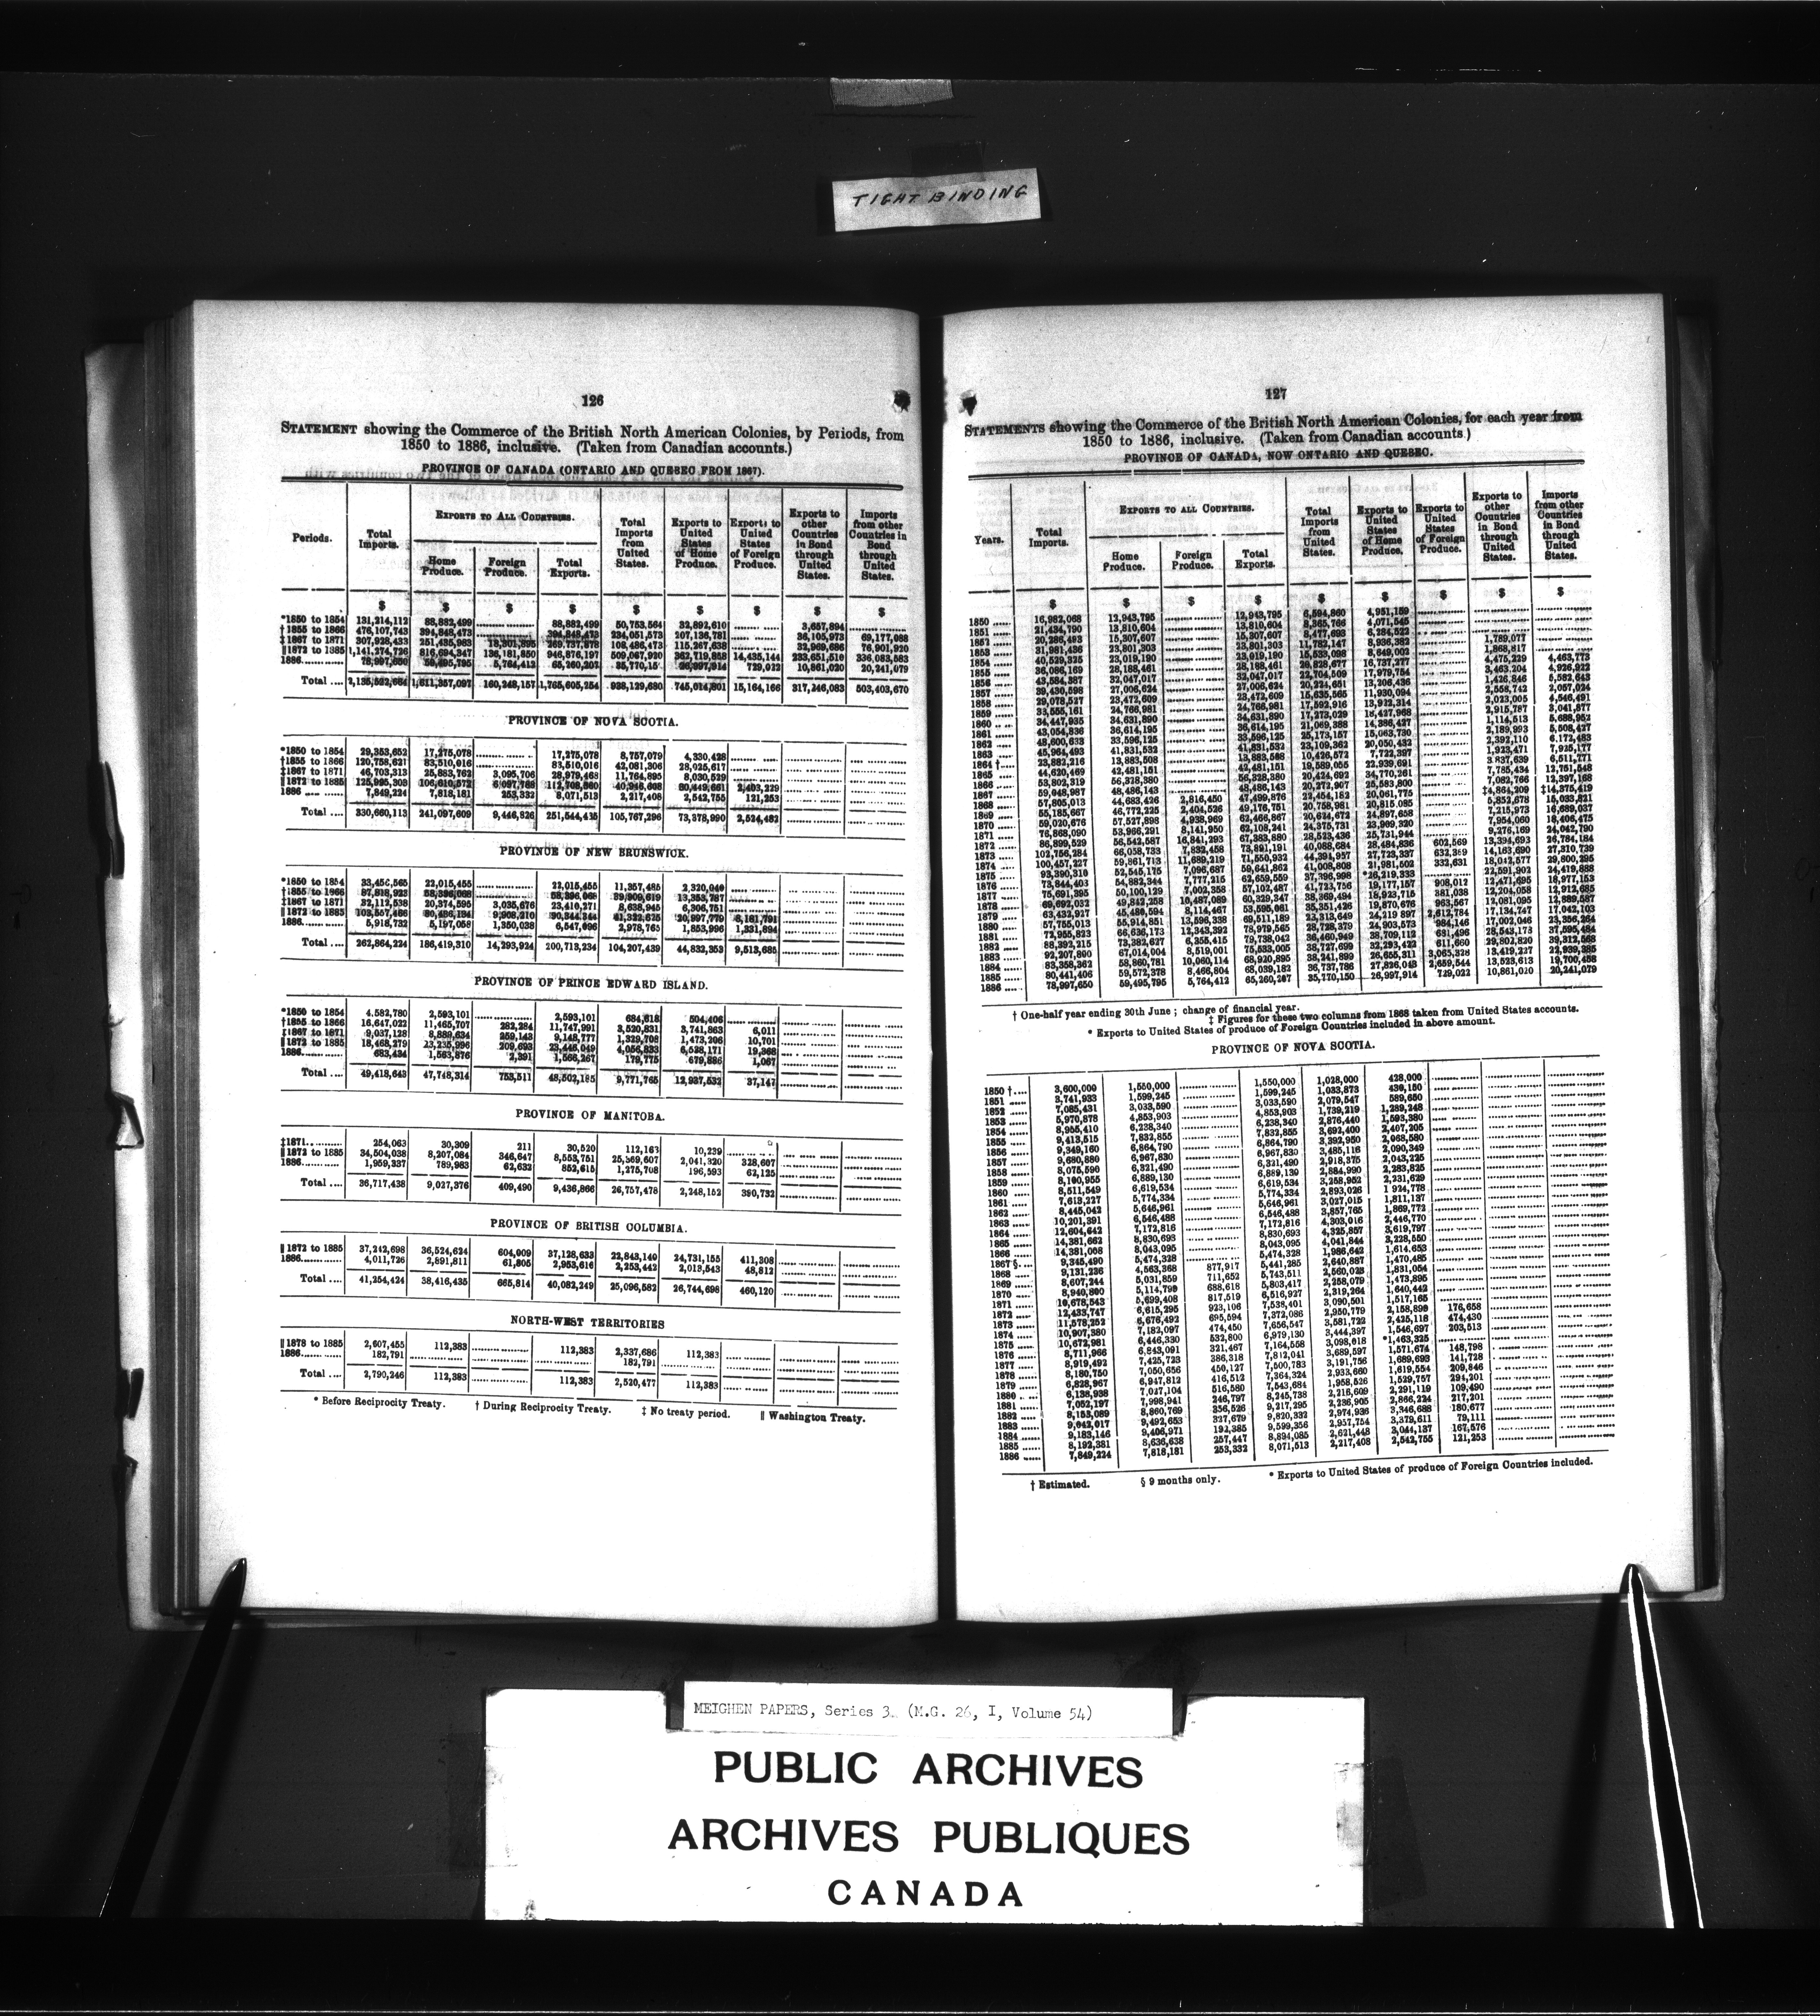 TIGHT BINDING
126
STATEMENT showing the Commerce of the British North American Colonies, by Periods, from
1850 to 1886, inclusive. (Taken from Canadian accounts.)
PROVINCE OF CANADA (ONTARIO AND QUEBEC FROM 1867).
Periods.
Total Imports.
EXPORTS TO ALL COUNTRIES.
Home Produce.
Foreign Produce.
Total Exports.
Total Imports from United States.
Exports to United States of Home Produce.
Exports to United States of Foreign Produce.
Exports to other Countries in Bond through United States.
Imports from other Countries in Bond through United States.
$ $ $ $ $ $ $ $ $
*1850 to 1854 131,214,112 88,882,499 88,882,499 50,753,564 32,892,610 3,657,894
†1855 to 1866 476,107,743 394,848,473 394,848,473 234,051,573 207,136,781 36,105,973 69,177,088
‡1867 to 1871 307,928,433 251,435,968 269,737,878 108,486,473 115,267,638 32,969,686 76,901,920
||1872 to 1885 1,141,274,726 816,694,347 136,181,850 946,876,197 509,067,920 362,719,858 14,435,144 233,651,510 336,083,583
1886 78,997,650 59,495,795 5,764,412 65,260,207 35,770,15 26,997,914 729,022 10,861,020 20,241,079
Total .... 2,135,522,664 1,611,357,097 160,248,157 1,765,605,254 938,129,680 745,014,801 15,164,166 317,246,083 503,403,670
PROVINCE OF NOVA SCOTIA.
*1850 to 1854 29,353,652 17,275,078 17,275,078 8,757,079 4,330,428
†1855 to 1866 120,758,621 83,510,016 83,510,016 42,081,306 28,025,617
‡1867 to 1871 46,703,313 25,883,762 3,095,706 28,979,468 11,764,895 8,030,529
||1872 to 1885 125,995,303 106,610,572 6,097,788 112,708,360 40,946,608 30,449,661 2,403,229
1886 7,849,224 7,818,181 253,332 8,071,513 2,217,408 2,542,755 121,253
Total .... 330,660,113 241,097,609 9,446,826 251,544,435 105,767,296 73,378,990 2,524,482
PROVINCE OF NEW BRUNSWICK.
*1850 to 1854 33,456,565 22,015,455 22,015,455 11,357,485 2,320,040
†1855 to 1866 87,818,923 58,396,068 58,396,068 39,909,619 13,353,787
‡1867 to 1871 32,112,538 20,374,595 3,035,676 23,410,271 8,638,945 6,306,751
||1872 to 1885 103,557,466 80,436,134 9,908,210 90,344,344 41,322,625 20,997,779 8,181,791
1886 5,918,732 5,197,058 1,350,038 6,547,096 2,978,765 1,853,996 1,331,894
Total .... 262,864,224 186,419,310 14,293,924 200,713,234 104,207,439 44,832,353 9,513,685
PROVINCE OF PRINCE EDWARD ISLAND.
*1850 to 1854 4,582,780 2,593,101 2,593,101 684,618 504,406
†1855 to 1866 16,647,022 11,465,707 282,284 11,747,991 3,520,831 3,741,863 6,011
‡1867 to 1871 9,037,128 8,889,634 259,143 9,148,777 1,329,708 1,473,206 10,701
||1872 to 1885 18,468,279 23,235,996 209,693 23,445,049 4,056,833 6,538,171 19,368
1886 683,434 1,563,876 2,391 1,566,267 179,775 679,886 1,067
Total .... 49,418,643 47,748,314 753,511 48,502,185 9,771,765 12,937,532 37,147
PROVINCE OF MANITOBA.
‡1871 254,063 30,309 211 30,520 112,163 10,239
||1872 to 1885 34,504,038 8,207,084 346,647 8,553,751 25,369,607 2,041,320 328,607
1886 1,959,337 789,983 62,632 852,615 1,275,708 196,593 62,125
Total .... 36,717,438 9,027,376 409,490 9,436,866 26,757,478 2,248,152 390,732
PROVINCE OF BRITISH COLUMBIA.
||1872 to 1885 37,242,698 36,524,624 604,009 37,128,633 22,843,140 24,731,155 411,308
1886 4,011,726 2,891,811 61,805 2,953,616 2,253,442 2,013,543 48,812
Total .... 41,254,424 38,416,435 665,814 40,082,249 25,096,582 26,744,698 460,120
NORTH-WEST TERRITORIES
||1878 to 1885 2,607,455 112,383 112,383 2,337,686 112,383
1886 182,791 182,791
Total .... 2,790,246 112,383 112,383 2,520,477 112,383
* Before Reciprocity Treaty. † During Reciprocity Treaty. ‡ No treaty period. || Washington Treaty.
127
STATEMENTS showing the Commerce of the British North American Colonies, for each year from
1850 to 1886, inclusive. (Taken from Canadian accounts.)
PROVINCE OF CANADA, NOW ONTARIO AND QUEBEC.
Years.
Total Imports.
EXPORTS TO ALL COUNTRIES.
Home Produce.
Foreign Produce.
Total Exports.
Total Imports from United States.
Exports to United States of Home Produce.
Exports to United States of Foreign Produce.
Exports to other Countries in Bond through United States.
Imports from other Countries in Bond through United States.
$ $ $ $ $ $ $ $ $
1850 16,982,068 12,943,795 12,943,795 6,594,860 4,951,159
1851 21,434,790 13,810,604 13,810,604 8,365,766 4,071,545
1852 20,286,493 15,307,607 15,307,607 8,477,693 6,284,522
1853 31,981,436 23,801,303 23,801,303 11,782,147 8,936,382 1,789,077
1854 40,529,325 23,019,190 23,019,190 15,533,098 8,649,002 1,868,817
1855 36,086,169 28,188,461 28,188,461 20,828,677 16,737,277 4,475,229 4,463,773
1856 43,584,387 32,047,017 32,047,017 22,704,509 17,979,754 3,463,204 4,926,922
1857 39,430,598 27,006,624 27,006,624 20,224,651 13,206,436 1,426,846 5,582,643
1858 29,078,527 23,472,609 23,472,609 15,635,565 11,930,094 2,558,742 2,057,024
1859 33,555,161 24,766,981 24,766,981 17,592,916 13,922,314 2,023,005 4,546,491
1860 34,447,935 34,631,890 34,631,890 17,273,029 18,427,968 2,915,787 3,041,877
1861 43,054,836 36,614,195 36,614,195 21,069,388 14,386,427 1,114,513 5,688,952
1862 48,600,633 33,596,125 33,596,125 25,173,157 15,063,730 2,189,993 5,508,427
1863 45,964,493 41,831,532 41,831,532 23,109,362 20,050,432 2,392,110 6,172,483
1864 † 23,882,216 13,883,508 13,883,508 10,426,572 7,722,397 1,923,471 7,925,177
1865 44,620,469 42,481,151 42,481,151 19,589,055 22,939,691 3,837,639 6,511,771
1866 53,802,319 56,328,380 56,328,380 20,424,692 34,770,261 7,785,434 12,751,548
1867 59,048,987 48,486,143 48,486,143 20,272,907 25,583,800 7,082,766 12,397,168
1868 57,805,013 44,683,426 2,816,450 47,499,876 22,454,182 20,061,775 ‡4,864,209 ‡14,375,419
1869 55,185,667 46,772,225 2,404,526 49,176,751 20,758,981 20,815,085 5,852,678 15,033,821
1870 59,020,676 57,527,898 4,938,969 62,466,867 20,624,672 24,897,658 7,215,973 16,689,037
1871 76,868,090 53,966,291 8,141,950 62,108,241 24,375,731 23,909,320 7,954,060 18,406,475
1872 86,899,529 56,542,587 67,383,880 28,523,436 25,731,944 9,276,169 24,042,790
1873 102,756,284 66,058,733 7,832,458 73,891,191 40,088,684 28,484,836 602,569 13,394,693 26,784,184
1874 100,457,227 59,861,713 11,689,219 71,550,932 44,391,957 27,723,337 632,369 14,163,690 27,310,739
1875 93,390,310 52,545,175 7,096,687 59,641,862 41,008,808 21,981,502 332,631 18,042,577 29,800,295
1876 73,844,403 54,882,344 7,777,215 62,659,559 37,396,998 *26,219,333 22,591,902 24,419,888
1877 75,691,395 50,100,129 7,002,358 57,102,487 41,723,756 19,177,157 908,012 12,471,695 18,977,153
1878 69,692,032 49,842,258 10,487,089 60,329,347 38,369,494 18,923,715 381,038 12,204,058 12,912,685
1879 63,432,927 45,480,594 8,114,467 53,595,061 35,351,426 19,870,676 963,567 12,081,095 12,889,587
1880 57,755,013 55,914,851 13,596,338 69,511,189 23,313,649 24,219,897 2,612,784 17,134,747 17,042,103
1881 72,955,823 66,636,173 12,343,392 78,979,565 28,728,379 24,903,573 984,146 17,002,046 23,356,254
1882 88,392,215 73,382,627 6,355,415 79,738,042 36,460,949 38,709,112 631,496 28,543,173 37,595,484
1883 92,207,800 67,014,004 8,519,001 75,533,005 38,727,699 32,293,422 611,660 29,802,820 39,312,568
1884 83,358,362 58,860,781 10,060,114 68,920,895 38,241,899 26,655,311 3,065,328 13,419,227 22,939,385
1885 80,441,406 59,572,378 8,466,804 68,039,182 36,737,786 27,826,043 2,659,544 13,523,613 19,700,458
1886 78,997,650 59,495,795 5,764,412 65,260,207 35,770,150 26,997,914 729,022 10,861,020 20,241,079
† One-half year ending 30th June ; change of financial year.
‡ Figures for these two columns from 1868 taken from United States accounts.
* Exports to United States of produce of Foreign Countries included in above amount.
PROVINCE OF NOVA SCOTIA.
1850 † 3,600,009 1,550,000 1,550,000 1,028,000 428,000
1851 3,741,933 1,599,245 1,599,245 1,033,873 439,150
1852 7,085,431 3,033,590 3,033,590 2,079,547 589,650
1853 5,970,878 4,853,903 4,853,903 1,739,219 1,289,248
1854 8,955,410 6,238,340 6,238,340 2,876,440 1,598,380
1855 9,413,515 7,832,855 7,832,855 3,692,400 2,407,205
1856 9,349,160 6,864,790 6,864,790 3,392,950 2,068,580
1857 9,680,880 6,967,830 6,967,830 3,485,116 2,090,349
1858 8,075,590 6,321,490 6,321,490 2,918,375 2,043,225
1859 8,100,955 6,889,130 6,889,130 2,884,990 2,283,825
1860 8,511,549 6,619,534 6,619,534 3,258,952 2,231,629
1861 7,613,227 5,774,334 5,774,334 2,893,026 1,924,778
1862 8,445,042 5,646,961 5,646,961 3,027,015 1,811,137
1863 10,201,391 6,546,488 6,546,488 3,857,765 1,869,772
1864 12,604,642 7,172,816 7,172,816 4,303,016 2,446,770
1865 14,381,662 8,830,693 8,830,693 4,325,857 3,619,797
1866 14,381,008 8,043,095 8,043,095 4,041,844 3,228,550
1867 § 9,345,490 5,474,328 5,474,328 1,986,642 1,614,653
1868 9,131,236 4,563,368 877,917 5,441,285 2,640,887 1,470,485
1869 8,607,244 5,031,859 711,652 5,743,511 2,560,023 1,831,054
1870 8,940,800 5,114,799 688,618 5,803,417 2,258,079 1,473,895
1871 10,678,543 5,699,408 817,519 6,516,927 2,319,264 1,640,442
1872 12,433,747 6,615,295 923,106 7,538,401 3,090,501 1,517,165
1873 11,578,252 6,676,492 695,594 7,372,086 2,950,779 2,158,899 176,658
1874 10,907,380 7,182,097 474,450 7,656,547 3,581,722 2,425,118 474,430
1875 10,672,981 6,446,330 532,800 6,979,130 3,444,397 1,546,697 203,513
1876 8,711,966 6,843,091 321,467 7,164,558 3,098,618 *1,463,325
1877 8,919,492 7,425,723 386,318 7,812,041 3,689,597 1,571,674 148,798
1878 8,180,750 7,050,656 450,127 7,500,783 3,191,756 1,689,693 141,728
1879 6,828,967 6,947,812 416,512 7,364,324 2,933,660 1,619,554 209,846
1880 6,138,938 7,027,104 516,580 7,543,684 1,958,526 1,529,757 294,201
1881 7,052,197 7,998,941 246,797 8,245,738 2,216,609 2,291,119 109,490
1882 8,153,089 8,860,769 356,526 9,217,295 2,236,905 2,866,224 217,201
1883 9,642,017 9,492,653 327,679 9,820,332 2,974,936 3,346,686 180,677
1884 9,183,146 9,406,971 192,385 9,599,356 2,957,754 3,379,611 79,111
1885 8,192,381 8,636,638 257,447 8,894,085 2,621,448 3,044,137 167,576
1886 7,849,224 7,818,181 253,332 8,071,513 2,217,408 2,542,755 121,253
† Estimated. § 9 months only. * Exports to United States of produce of Foreign Countries included.
MEIGHEN PAPERS, Series 3. (M.G. 26, I, Volume 54)
PUBLIC ARCHIVES
ARCHIVES PUBLIQUES
CANADA